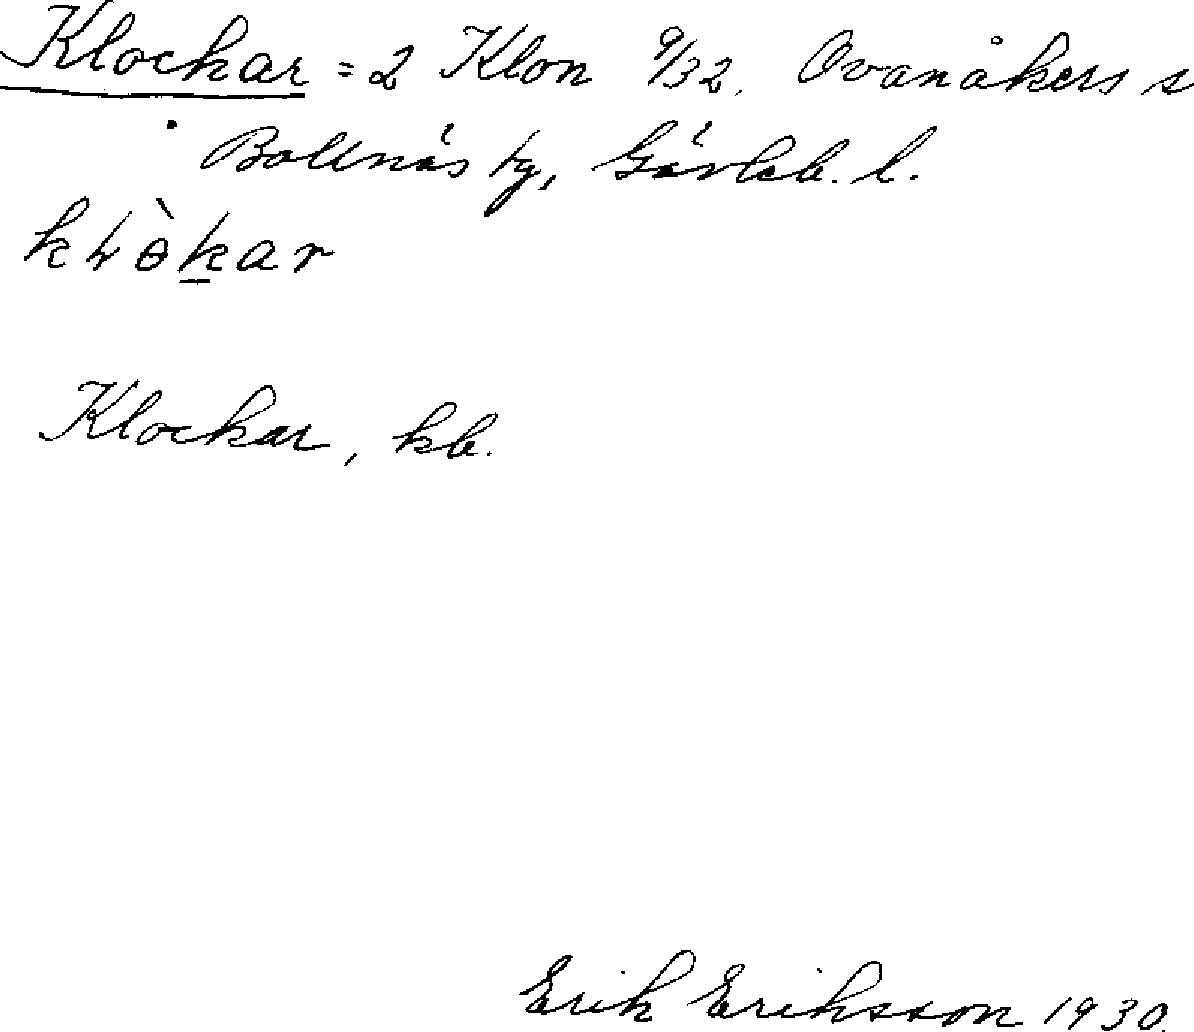 Klockar = 2 Klon 9/32. Ovanåkers s
Bollnäs tg, Gävleb. l.
Klockar, kb.
Erik Eriksson 1930.